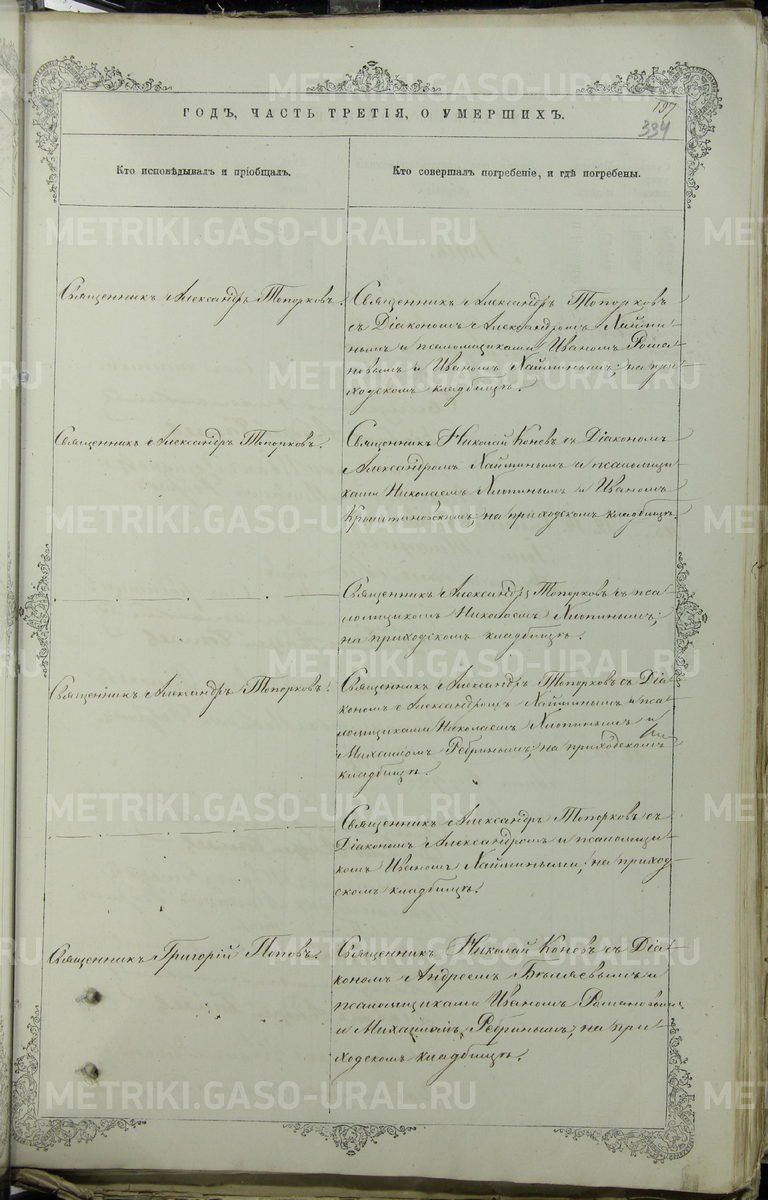 197
334
ГОДЪ, ЧАСТЬ ТРЕТІЯ, О УМЕРШИХЪ.
Кто исповѣдывалъ и пріобщалъ.
Кто совершалъ погребеніе, и гдѣ погребены.
Священникъ Александръ Топорковъ.
Священникъ Александръ Топорковъ
съ Діакономъ Александромъ
и псаломщиками Иваномъ Рома-
новымъ и Иваномъ на при-
ходскомъ кладбищѣ.
Священникъ Александръ Топорковъ.
Священникъ Николай Коневъ съ Діакономъ
Александромъ и псаломщи-
ками Николаемъ и Иваномъ
на приходскомъ кладбищѣ.
Священникъ Александръ Топорковъ съ пса-
ломщикомъ Николаемъ
на приходскомъ кладбищѣ.
Священникъ Александръ Топорковъ.
Священникъ Александръ Топорковъ съ Діа-
кономъ Александромъ и пса-
ломщиками Николаемъ и
Михаиломъ Ребринымъ; на приходскомъ
кладбищѣ.
Священникъ Александръ Топорковъ съ
Діакономъ Александромъ и псаломщи-
комъ Иваномъ на приход-
скомъ кладбищѣ.
Священникъ Григорій Поповъ.
Священникъ Николай Коневъ съ Діа-
кономъ Андреемъ Бѣляевымъ и
псаломщиками Иваномъ Романовымъ
и Михаиломъ Ребринымъ; на при-
ходскомъ кладбищѣ.
METRIKI.GASO-URAL.RU